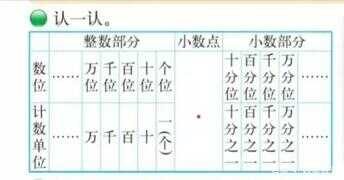 认一认。
整数部分 小数点 小数部分
数位 …… 万位 千位 百位 十位 个位 十分位 百分位 千分位 万分位 ……
计数单位 …… 万 千 百 十 一(个) · 十分之一 百分之一 千分之一 万分之一 ……